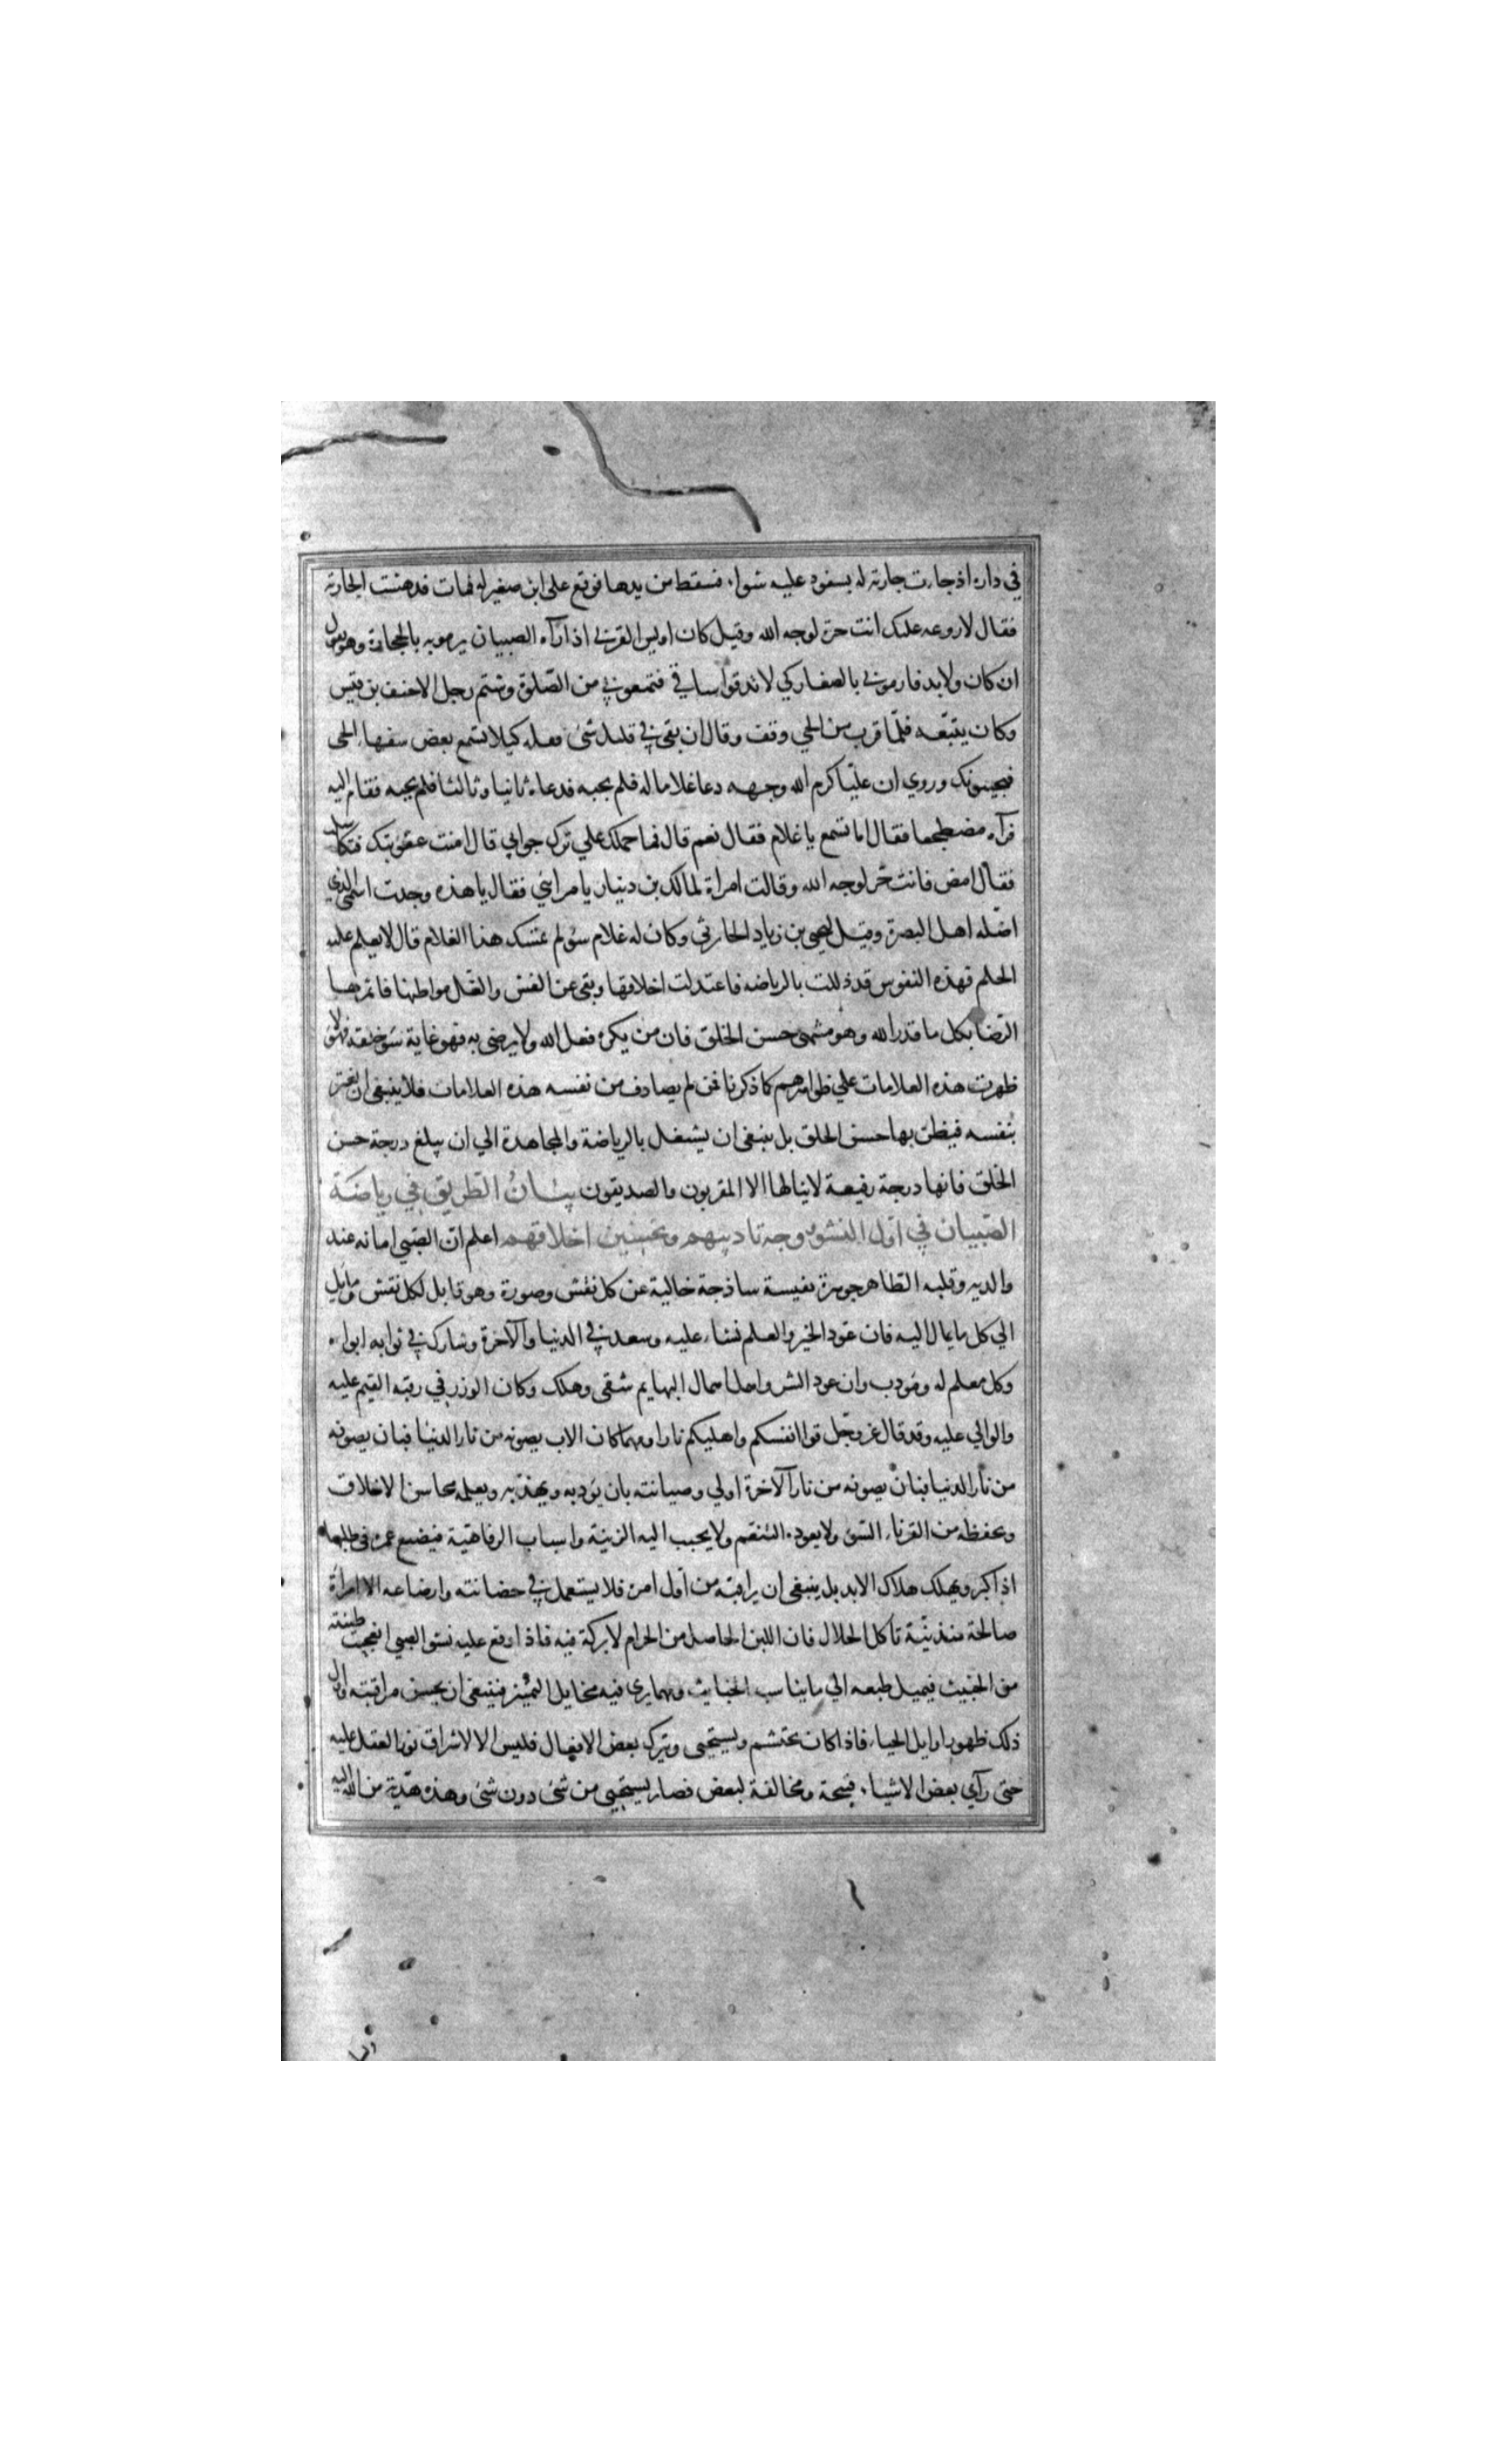 في داره اذ جاءت جارية له بسفود عليه شواء فسقط من يدها فوقع على ابن صغير له فمات فدهشت الجارية
فقال لا روعه عليك انت حرة لوجه الله وقيل كان اويس القرني اذا رآه الصبيان يرمونه بالحجارة وهو يقول
ان كان ولا بد فارموني بالصغار كي لا تدقوا ساقي فتمنعوني من الصلوة وشتم رجل الاحنف بن قيس
وكان يتبعه فلما قرب من الحي وقف وقال ان بقي في قلبك شئ فقله كيلا يسمع بعض سفهاء الحى
فيجيبونك وروي ان عليا كرم الله وجهه دعا غلاما له فلم يجبه فدعاه ثانيا وثالثا فلم يجبه فقام اليه
فرآه مضطجعا فقال اما تسمع يا غلام فقال نعم قال فما حملك علي ترك جوابي قال امنت عقوبتك فتكاسلت
فقال امض فانت حر لوجه الله وقالت امراة لمالك بن دينار يا مرايئي فقال يا هذه وجدت اسمى الذي
اضله اهل البصرة وقيل ليحيى بن زياد الحارثي وكان له غلام سوء لم تمسك هذا الغلام قال لا تعلم عليه
الحلم فهذه النفوس قد ذللت بالرياضه فاعتدلت اخلاقها ونقى عن الغش والغل بواطنها فاثمرها
الرضا بكل ما قدر الله وهو منتهى حسن الخلق فان من يكره فعل الله ولا يرضى به فهو غاية سوء خلقه فهولاء
ظهرت هذه العلامات علي ظواهرهم كما ذكرنا فمن لم يصادف من نفسه هذه العلامات فلا ينبغى ان يغتر
بنفسه فيظن بها حسن الخلق بل ينبغى ان يشتغل بالرياضة والمجاهدة الي ان يبلغ درجة حسن
الخلق فانها درجة رفيعة لا ينالها الا المقربون والصديقون بيان الطريق في رياضة
الصبيان في اول النشو ووجه تاديبهم وتحسين اخلاقهم اعلم ان الصبي امانه عند
والديه وقلبه الطاهر جوهرة نفيسة ساذجة خالية عن كل نقش وصورة وهو قابل لكل نقش ومايل
الي كل ما يمال اليه فان عود الخير والعلم نشاء عليه وسعد في الدنيا والآخرة وشارك في ثوابه ابواه
وكل معلم له ومودب وان عود الشر واهمل اهمال البهايم شقى وهلك وكان الوزر في رقبة القيم عليه
والوالي عليه وقد قال عز وجل قوا انفسكم واهليكم نارا ومهما كان الاب يصونه من نار الدنيا فبان يصونه
من نار الدنيا فبان يصونه من نار الآخرة اولي وصيانته بان يؤدبه ويهذبه ويعلمه محاسن الاخلاق
ويحفظه من القرناء السوء ولا يعوده التنعم ولا يحبب اليه الزينة واسباب الرفاهية فيضيع عمره فى طلبها
اذا كبر ويهلك هلاك الابد بل ينبغى ان يراقبه من اول امره فلا يستعمل في حضانته وارضاعه الا امراة
صالحة متدينة تاكل الحلال فان اللبن الحاصل من الحرام لا بركة فيه فاذا وقع عليه نشو الصبي انعجنت طينته
من الخبيث فيميل طبعه الي ما يناسب الخبايث ومهما رى فيه مخايل التمييز فينبغى ان يحسن مراقبته واول
ذلك ظهور اوايل الحياء فاذا كان يحتشم ويستحيى ويترك بعض الافعال فليس الا لاشراق نور العقل عليه
حتى رآي بعض الاشياء قبيحة ومخالفة لبعض فصار يستحيى من شئ دون شئ وهذه هدية من الله اليه